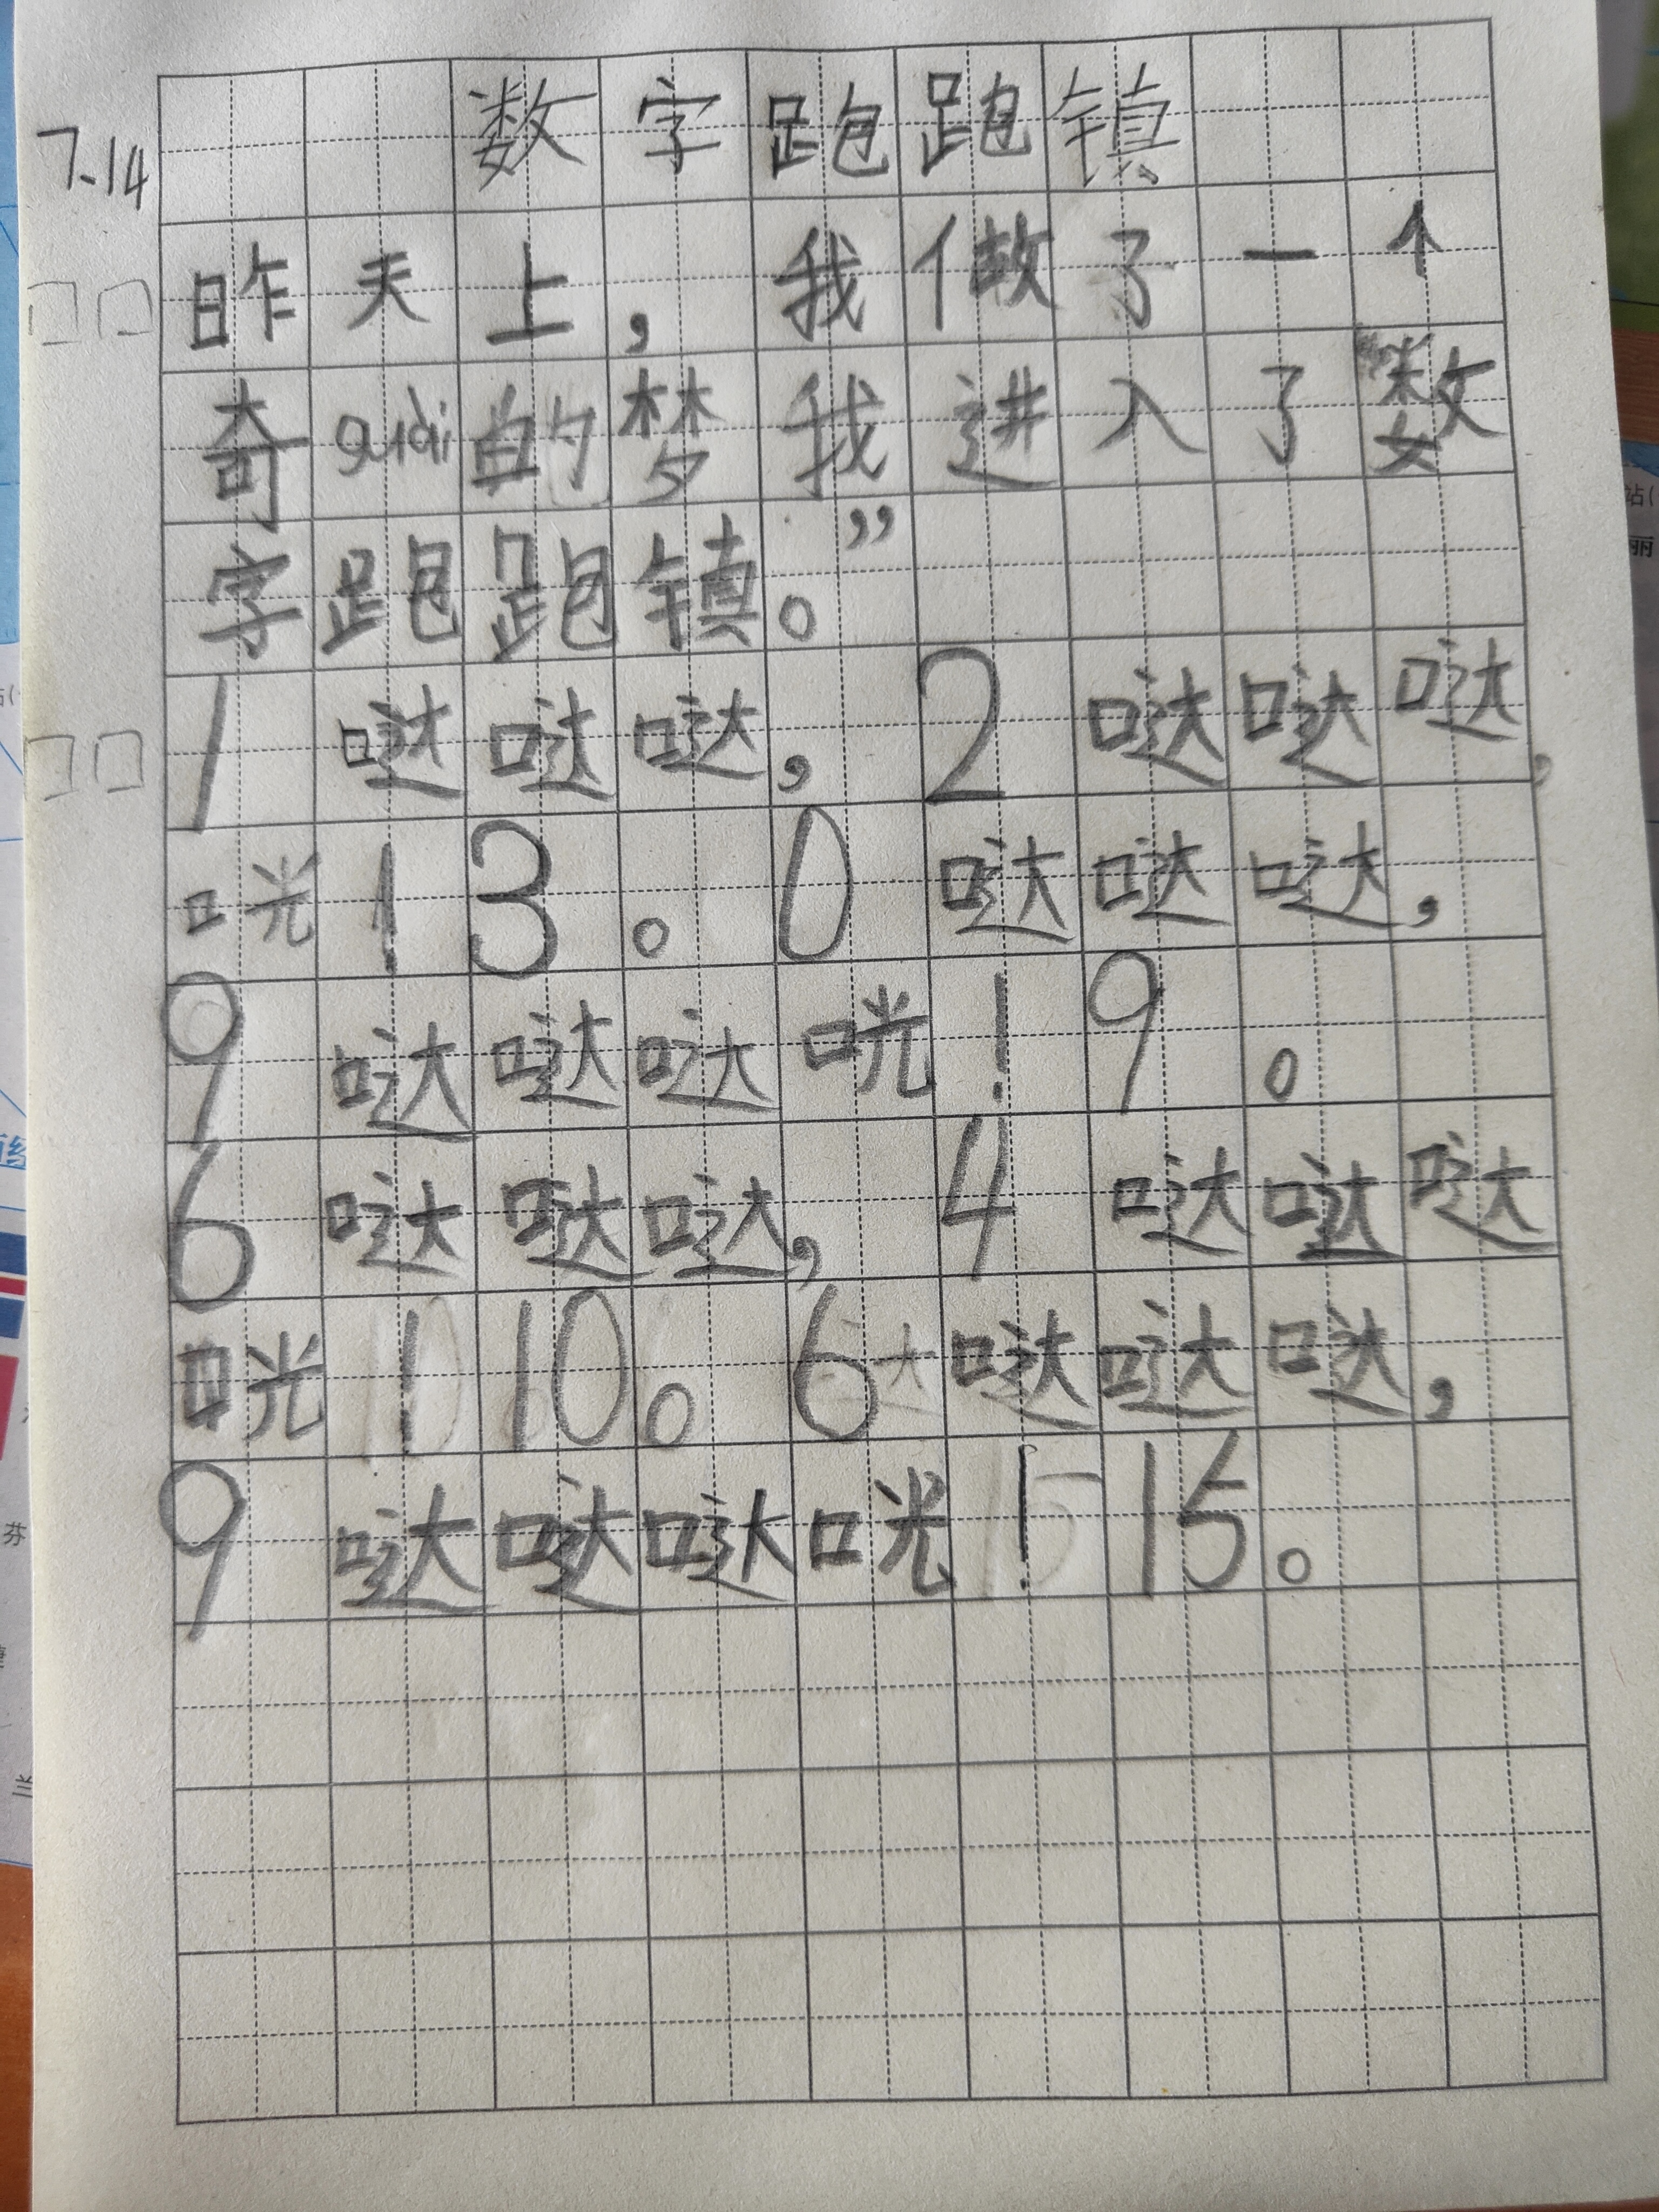 数字跑跑镇
7.14
昨天上，我做了一个
奇guài的梦我进入了数
字跑跑镇。”
1哒哒哒，2哒哒哒，
咣13。0哒哒哒，
9哒哒哒咣！9。
6哒哒哒，4哒哒哒
咣！10。6哒哒哒，
9哒哒哒咣！15。